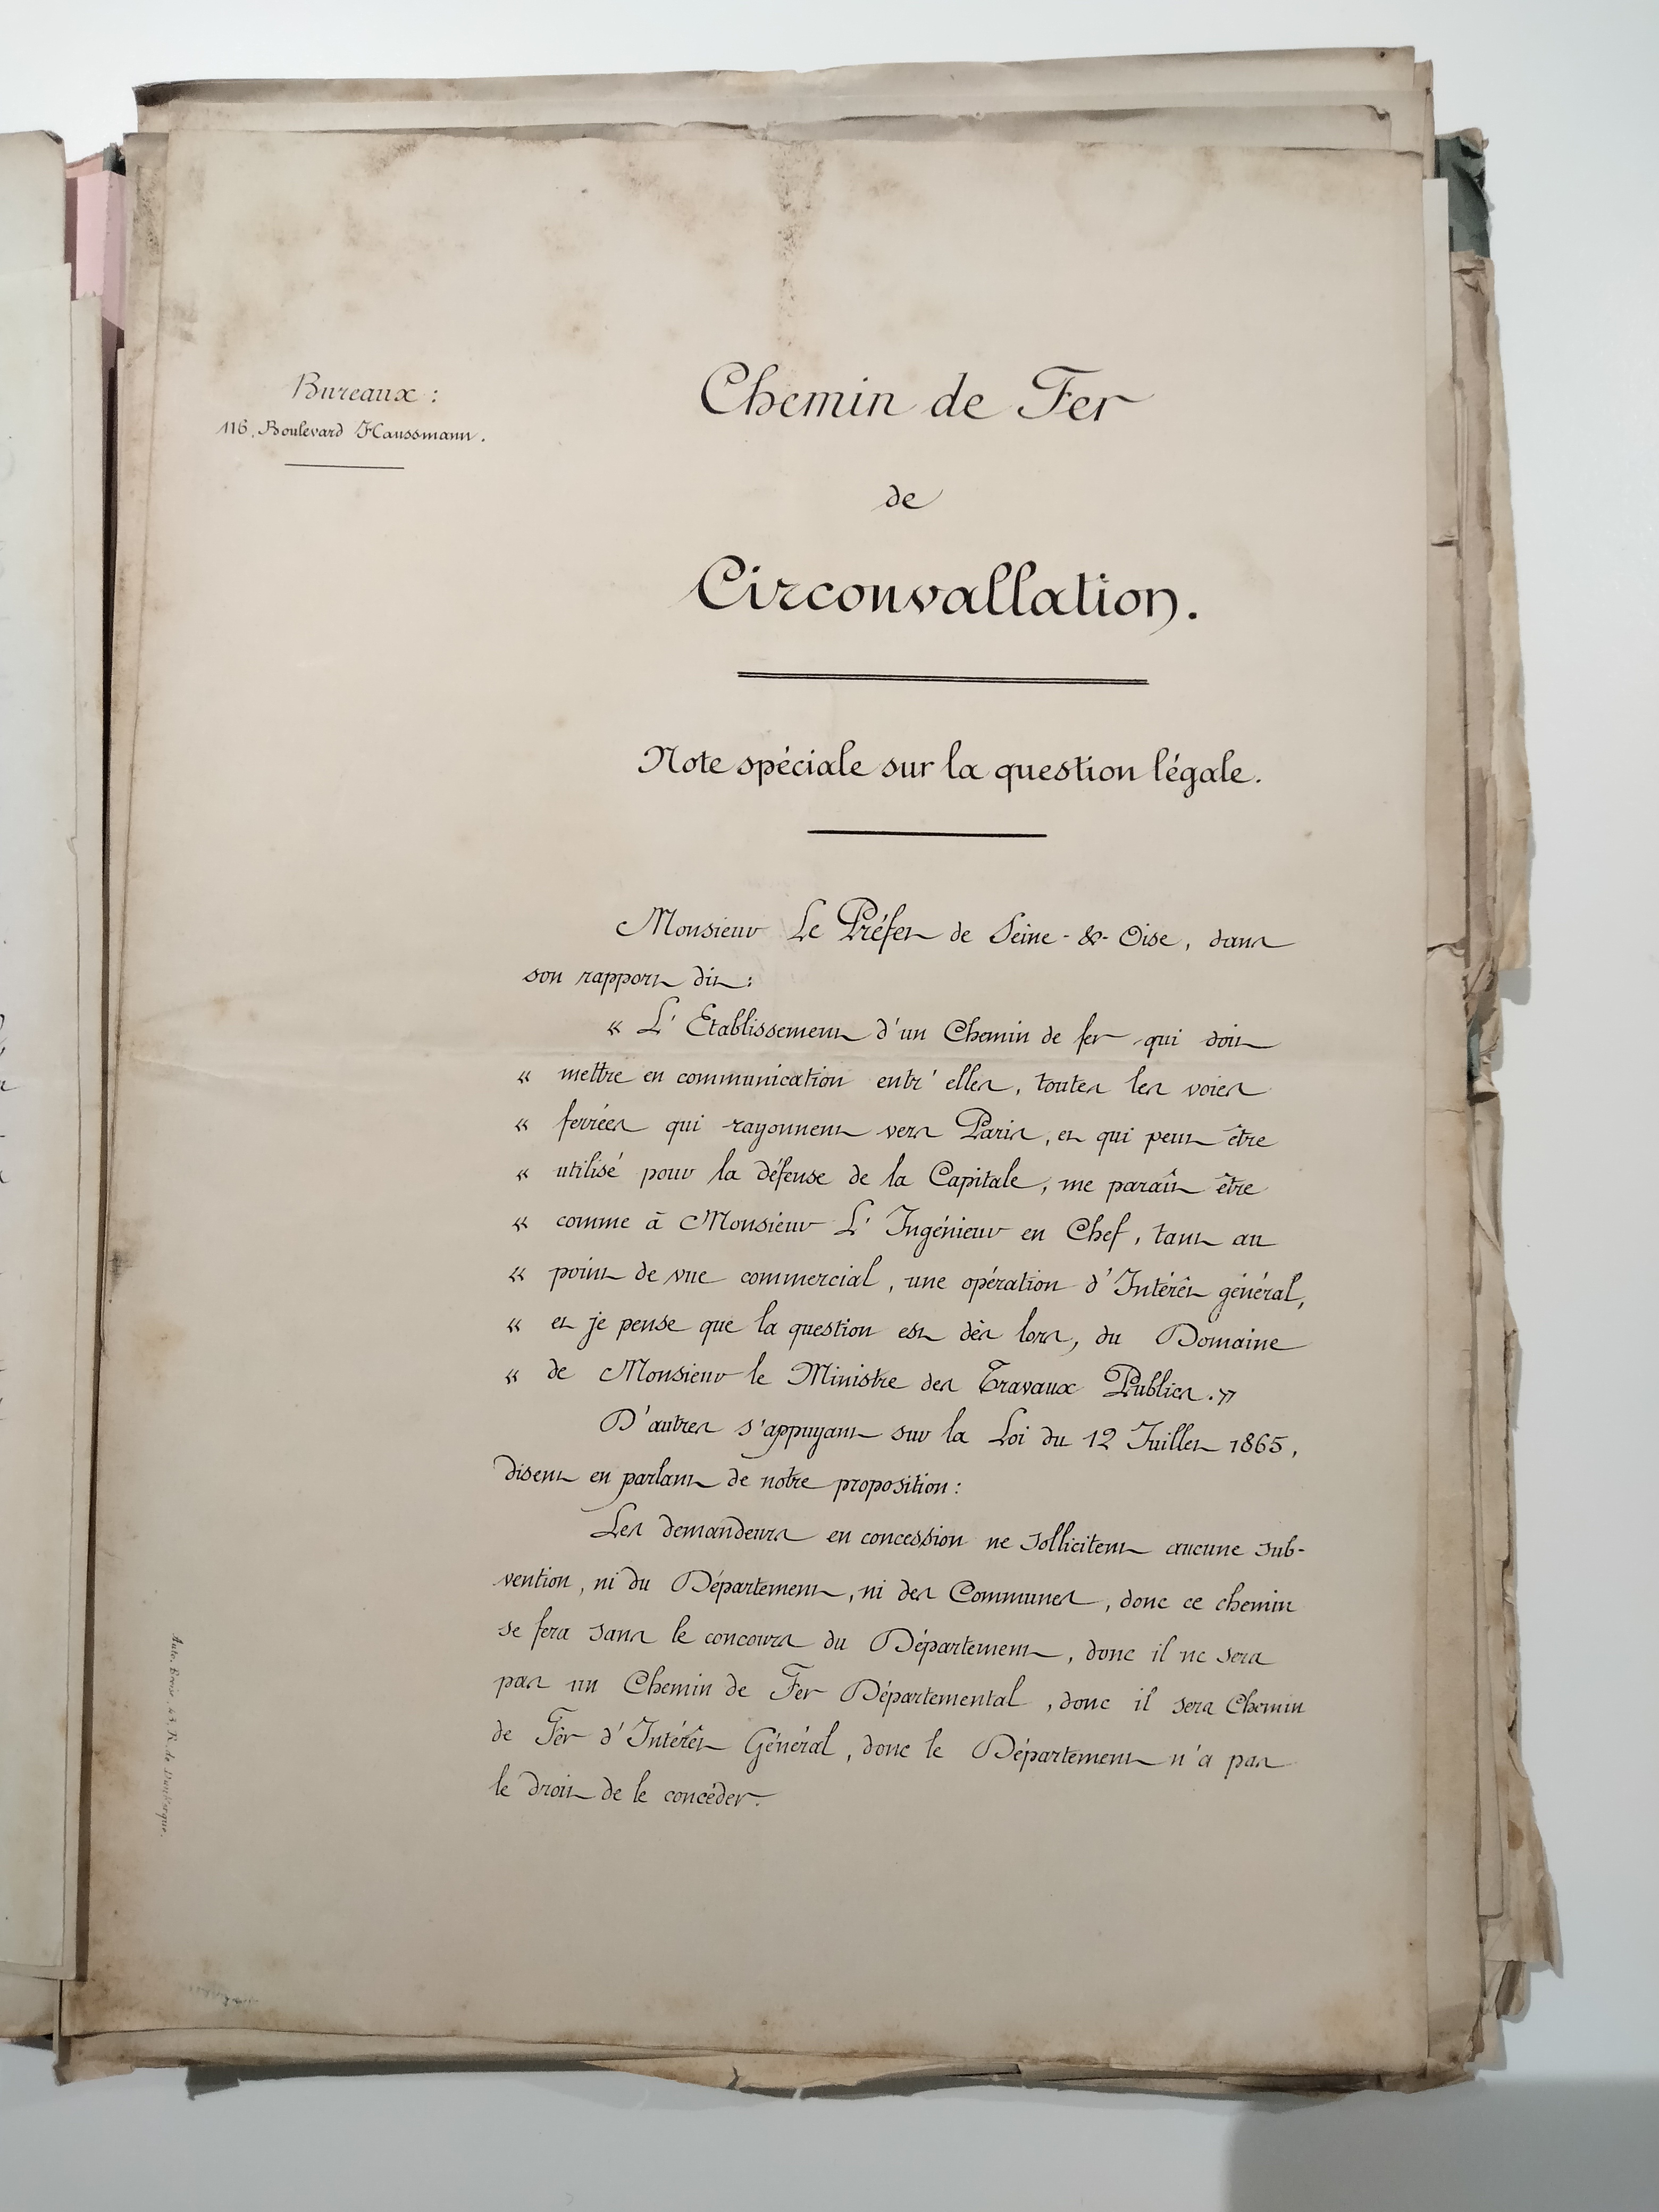 Bureaux :
116, Boulevard Haussmann.
Chemin de Fer
de
Circonvallation.
Note spéciale sur la question légale.
Monsieur Le Préfet de Seine-&-Oise, dans
son rapport dit :
« L' Etablissement d'un Chemin de fer qui doit
« mettre en communication entr' elles, toutes les voies
« ferrées qui rayonnent vers Paris, et qui peut être
« utilisé pour la défense de la Capitale, me paraît être
« comme à Monsieur L' Ingénieur en Chef, tant au
« point de vue commercial, une opération d'Intérêt général,
« et je pense que la question est dès lors, du Domaine
« de Monsieur le Ministre des Travaux Publics. »
D'autres s'appuyant sur la Loi du 12 Juillet 1865,
disent en parlant de notre proposition :
Les demandeurs en concession ne sollicitent aucune sub-
vention, ni du Département, ni des Communes, donc ce chemin
se fera sans le concours du Département, donc il ne sera
pas un Chemin de Fer Départemental, donc il sera Chemin
de Fer d'Intérêt Général, donc le Département n'a pas
le droit de le concéder.
Auto. Broise, 43, R. de Dunkerque.